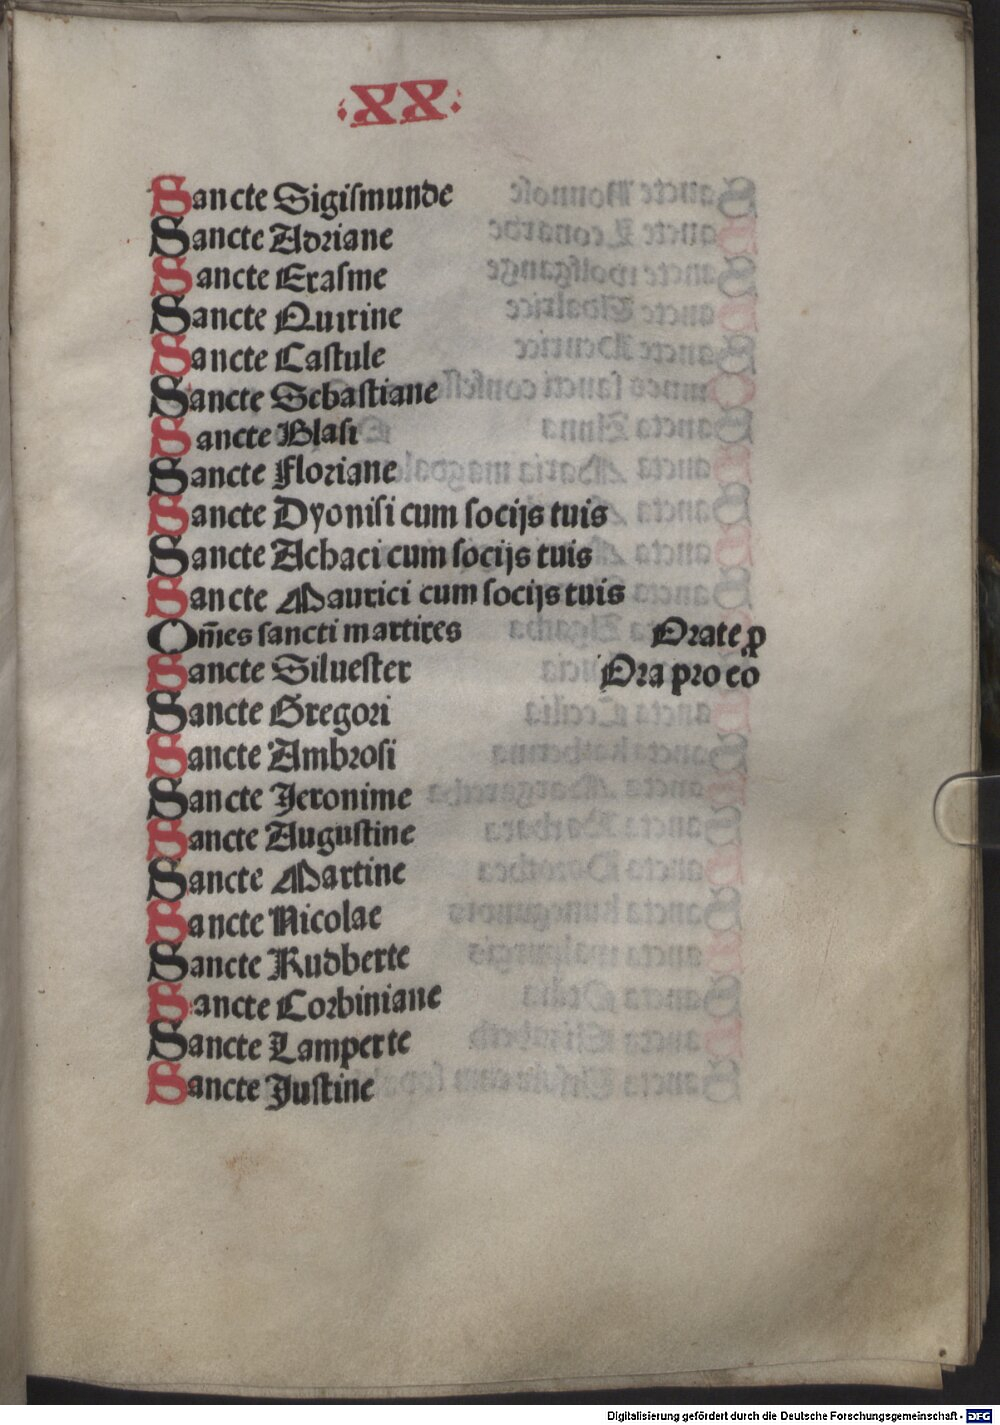 ·XX·
Sancte Sigiſmunde
Sancte Adriane
Sancte Eraſme
Sancte Quirine
Sancte Caſtule
Sancte Sebaſtiane
Sancte Blaſi
Sancte Floriane
Sancte Dyoniſi cum ſocijs tuis
Sancte Achaci cum ſocijs tuis
Sancte Maurici cum ſocijs tuis
Om̄es ſancti martires Orate ꝓ
Sancte Silueſter Ora pro eo
Sancte Gregori
Sancte Ambroſi
Sancte Jeronime
Sancte Auguſtine
Sancte Martine
Sancte Nicolae
Sancte Rudberte
Sancte Corbiniane
Sancte Lamperte
Sancte Juſtine
Digitalisierung gefördert durch die Deutsche Forschungsgemeinschaft - DFG